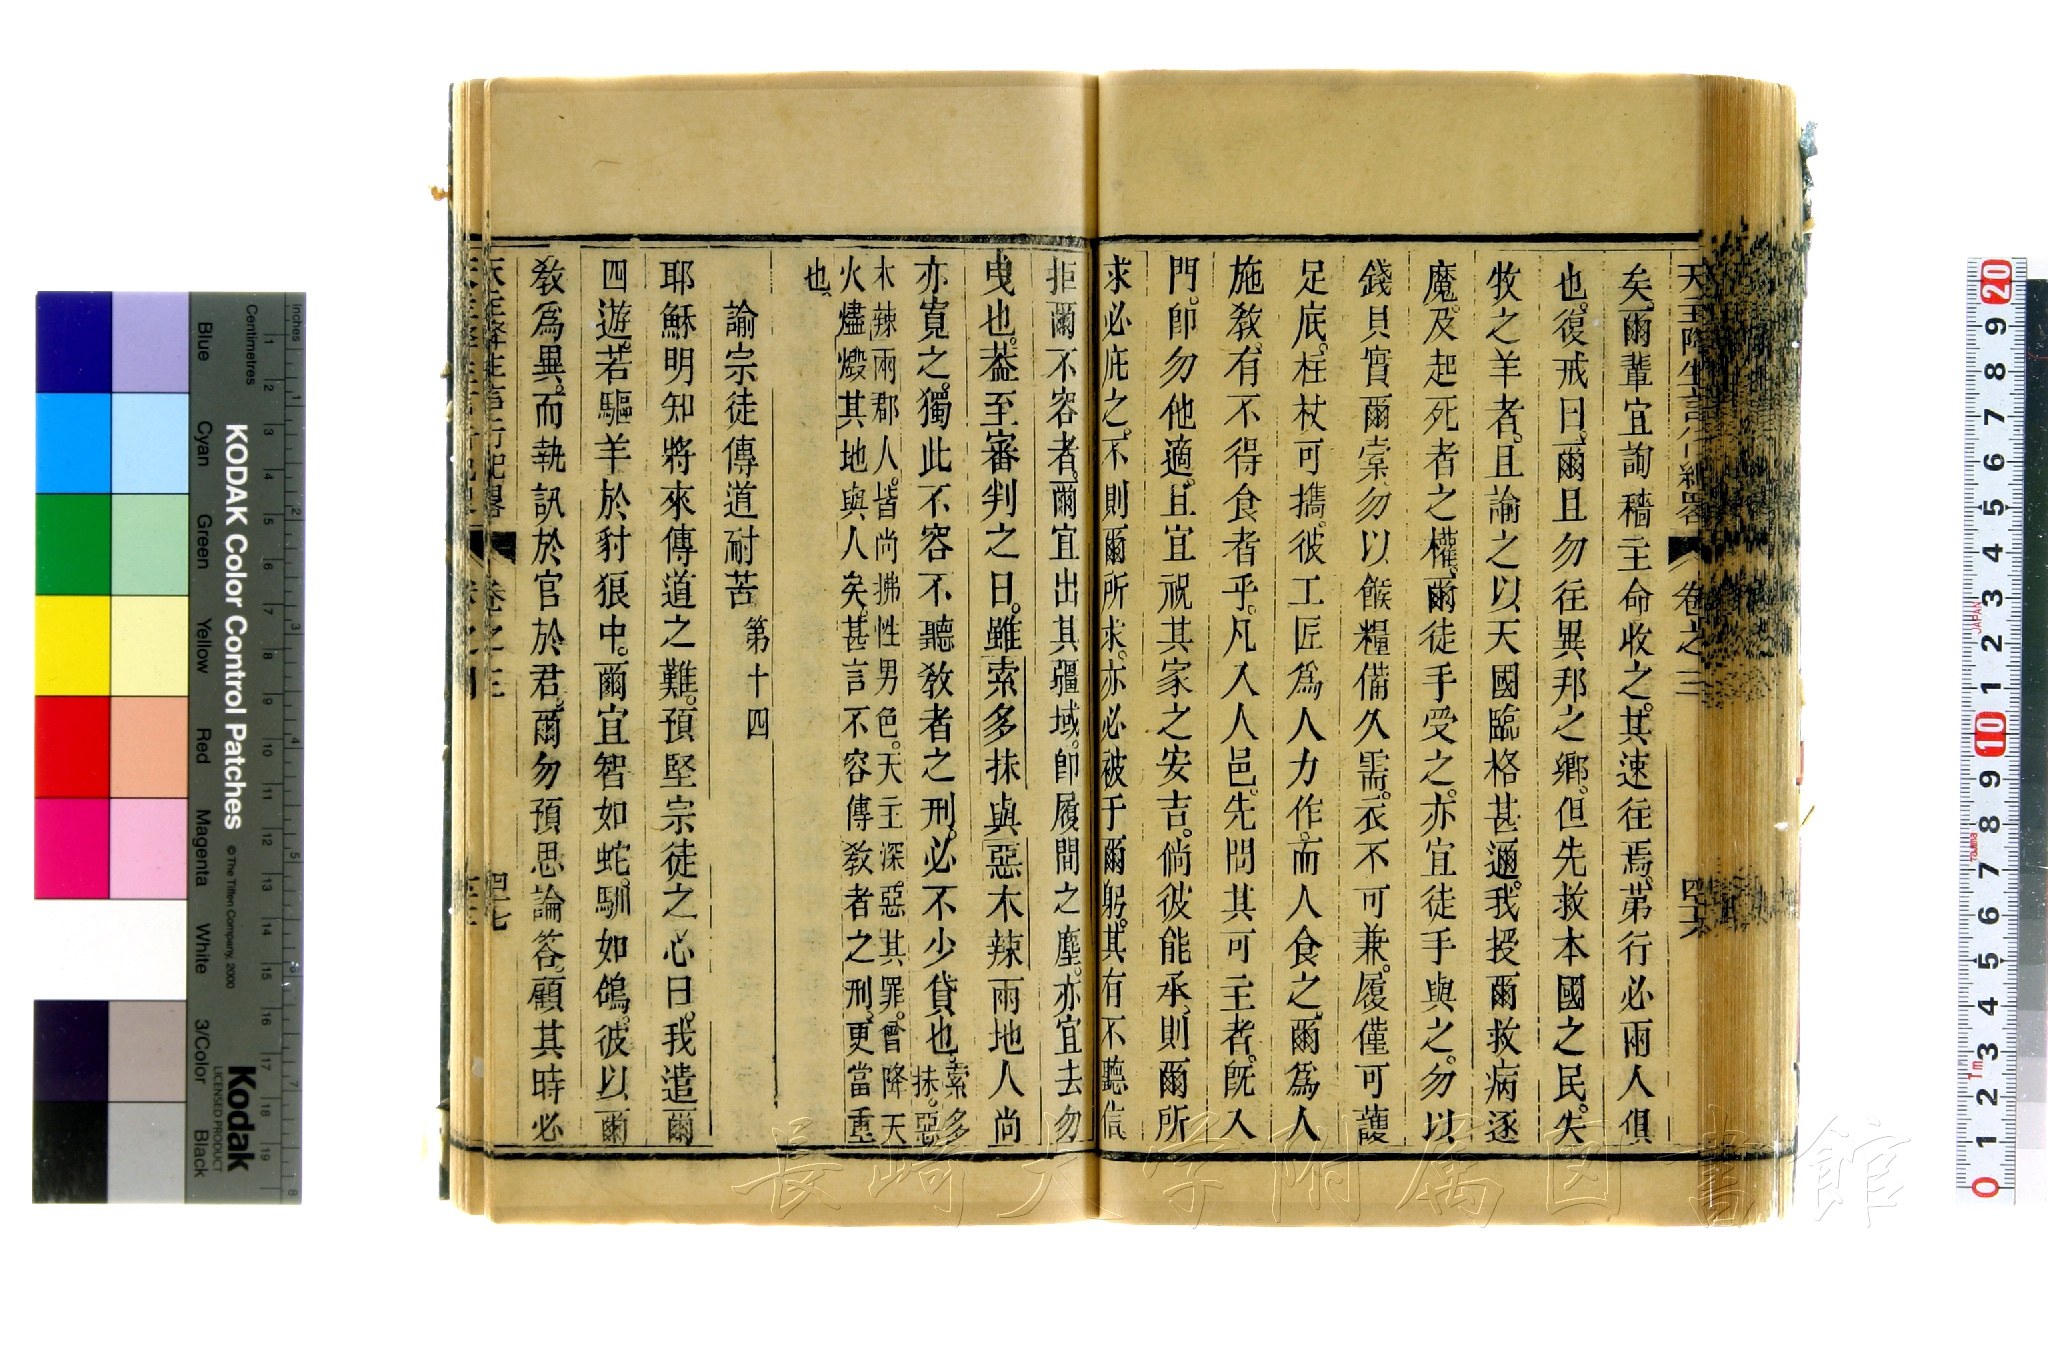 天主降生言行紀畧 卷之三 四六
矣。爾輩宜詢穡主命收之。其速往焉。第行必兩人俱
也。復戒曰。爾且勿往異邦之鄉。但先救本國之民。失
牧之羊者。且諭之以天國臨格甚邇。我授爾救病逐
魔。及起死者之權。爾徒手受之。亦宜徒手與之。勿以
錢貝實爾橐。勿以餱糧備久需。衣不可兼。履僅可護
足底。柱杖可攜。彼工匠爲人力作。而人食之。爾爲人
施敎。有不得食者乎。凡入人邑。先問其可主者。旣入
門。卽勿他適。且宜祝其家之安吉。倘彼能承。則爾所
求必庇之。不則爾所求。亦必被于爾躬。其有不聽信
拒爾不容者。爾宜出其疆域。卽履間之塵。亦宜去勿
曳也。葢至審判之日。雖索多抹與惡木辣兩地人尚
亦寬之。獨此不容不聽敎者之刑。必不少貸也。索多抹。惡
木辣兩郡人。皆尚拂性男色。天主深惡其罪。曾降天
火燼燬其地與人矣。甚言不容傳敎者之刑。更當重
也。
諭宗徒傳道耐苦 第十四
耶穌明知將來傳道之難。預堅宗徒之心曰。我遣爾
四遊。若驅羊於豺狼中。爾宜智如蛇。馴如鴿。彼以爾
敎爲異。而執訊於官於君。爾勿預思論答。顧其時必
天主降生言行紀畧 卷之三 四七
KODAK Color Control Patches
© The Tiffen Company, 2000
Kodak
LICENSED PRODUCT
inches
Centimetres
Blue
Cyan
Green
Yellow
Red
Magenta
White
3/Color
Black
JAPAN
Tajima
1m
長崎大学附属図書館